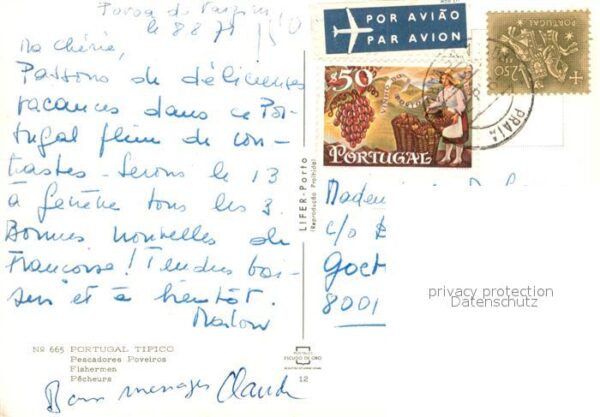 Povoa de Varzim
le 8 8 71
Ma Chérie,
Passons de délicieuses
vacances dans ce Por-
tugal plein de con-
trastes. Serons le 13
à Genève tous les 3.
Bonnes nouvelles de
Françoise! Tendres bai-
sers et à bientôt.
Nº 665 PORTUGAL TIPICO
Pescadores Poveiros
Fishermen
Pêcheurs
ESCUDO DE ORO
12
Claude
LIFER - Porto
(Reprodução Proibida)
POR AVIÃO
PAR AVION
$50
VINHO DO PORTO
PORTUGAL
PORTUGAL
2$50
PRAIA
Madem
c/o
8001
privacy protection
Datenschutz